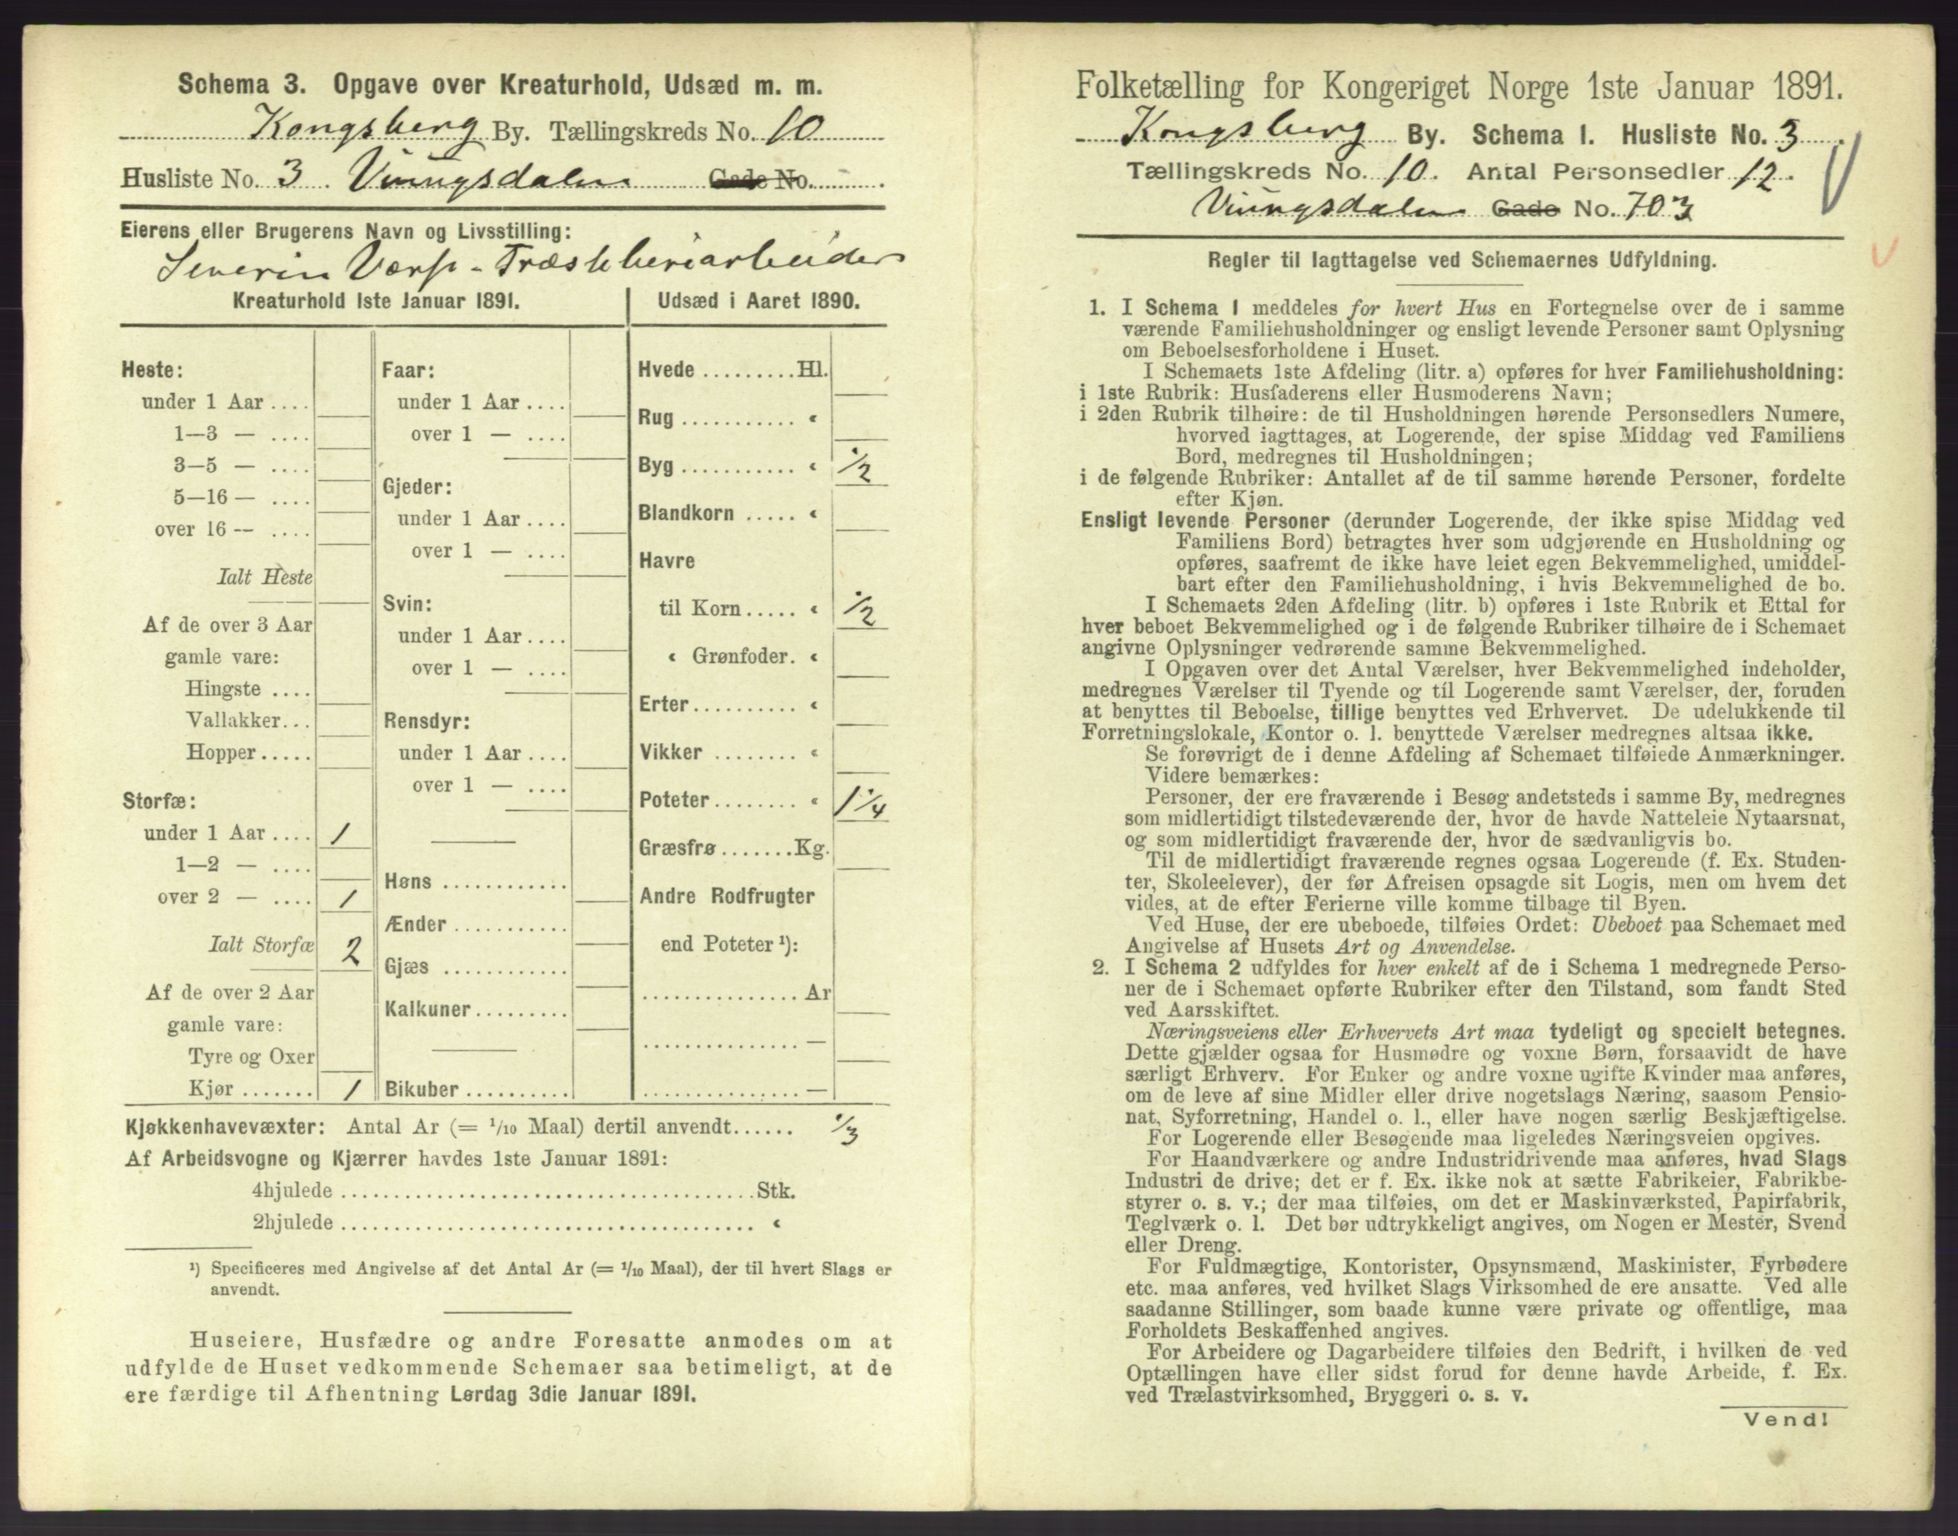 Schema 3. Opgave over Kreaturhold, Udsæd m. m.
Kongsberg By. Tællingskreds No. 10
Husliste No. 3 Vinungsdalen Gade No.
Eierens eller Brugerens Navn og Livsstilling:
SeverinVærp - Træsliberiarbeider
Kreaturhold 1ste Januar 1891.
Heste:
under 1 Aar ....
1—3 — ....
3—5 — ....
5—16 — ....
over 16 — ....
Ialt Heste
Af de over 3 Aar
gamle vare:
Hingste ....
Vallakker...
Hopper.....
Storfæ:
under 1 Aar .... 1
1—2 — ....
over 2 — .... 1
Ialt Storfæ 2
Af de over 2 Aar
gamle vare:
Tyre og Oxer
Kjør ....... 1
Faar:
under 1 Aar ....
over 1 — ....
Gjeder:
under 1 Aar ....
over 1 — ....
Svin:
under 1 Aar ....
over 1 — ....
Rensdyr:
under 1 Aar ....
over 1 — ....
Høns ............
Ænder ...........
Gjæs ............
Kalkuner.........
Bikuber ..........
Udsæd i Aaret 1890.
Hvede .........Hl.
Rug ........... «
Byg ........... « 1/2
Blandkorn ..... «
Havre
til Korn ..... « 1/2
« Grønfoder. «
Erter.......... «
Vikker ........ «
Poteter........ « 1 1/4
Græsfrø .......Kg.
Andre Rodfrugter
end Poteter ¹):
............... Ar
............... —
............... —
Kjøkkenhavevæxter: Antal Ar (= 1/10 Maal) dertil anvendt...... 1/3
Af Arbeidsvogne og Kjærrer havdes 1ste Januar 1891:
4hjulede ........................................Stk.
2hjulede ........................................ «
¹) Specificeres med Angivelse af det Antal Ar (= 1/10 Maal), der til hvert Slags er
anvendt.
Huseiere, Husfædre og andre Foresatte anmodes om at
udfylde de Huset vedkommende Schemaer saa betimeligt, at de
ere færdige til Afhentning Lørdag 3die Januar 1891.
Folketælling for Kongeriget Norge 1ste Januar 1891.
Kongsberg By. Schema I. Husliste No. 3
Tællingskreds No. 10. Antal Personsedler 12.
Vinungsdalen Gade No. 703
Regler til Iagttagelse ved Schemaernes Udfyldning.
1. I Schema I meddeles for hvert Hus en Fortegnelse over de i samme
værende Familiehusholdninger og ensligt levende Personer samt Oplysning
om Beboelsesforholdene i Huset.
I Schemaets 1ste Afdeling (litr. a) opføres for hver Familiehusholdning:
i 1ste Rubrik: Husfaderens eller Husmoderens Navn;
i 2den Rubrik tilhøire: de til Husholdningen hørende Personsedlers Numere,
hvorved iagttages, at Logerende, der spise Middag ved Familiens
Bord, medregnes til Husholdningen;
i de følgende Rubriker: Antallet af de til samme hørende Personer, fordelte
efter Kjøn.
Ensligt levende Personer (derunder Logerende, der ikke spise Middag ved
Familiens Bord) betragtes hver som udgjørende en Husholdning og
opføres, saafremt de ikke have leiet egen Bekvemmelighed, umiddel-
bart efter den Familiehusholdning, i hvis Bekvemmelighed de bo.
I Schemaets 2den Afdeling (litr. b) opføres i 1ste Rubrik et Ettal for
hver beboet Bekvemmelighed og i de følgende Rubriker tilhøire de i Schemaet
angivne Oplysninger vedrørende samme Bekvemmelighed.
I Opgaven over det Antal Værelser, hver Bekvemmelighed indeholder,
medregnes Værelser til Tyende og til Logerende samt Værelser, der, foruden
at benyttes til Beboelse, tillige benyttes ved Erhvervet. De udelukkende til
Forretningslokale, Kontor o. l. benyttede Værelser medregnes altsaa ikke.
Se forøvrigt de i denne Afdeling af Schemaet tilføiede Anmærkninger.
Videre bemærkes:
Personer, der ere fraværende i Besøg andetsteds i samme By, medregnes
som midlertidigt tilstedeværende der, hvor de havde Natteleie Nytaarsnat,
og som midlertidigt fraværende der, hvor de sædvanligvis bo.
Til de midlertidigt fraværende regnes ogsaa Logerende (f. Ex. Studen-
ter, Skoleelever), der før Afreisen opsagde sit Logis, men om hvem det
vides, at de efter Ferierne ville komme tilbage til Byen.
Ved Huse, der ere ubeboede, tilføies Ordet: Ubeboet paa Schemaet med
Angivelse af Husets Art og Anvendelse.
2. I Schema 2 udfyldes for hver enkelt af de i Schema 1 medregnede Perso-
ner de i Schemaet opførte Rubriker efter den Tilstand, som fandt Sted
ved Aarsskiftet.
Næringsveiens eller Erhvervets Art maa tydeligt og specielt betegnes.
Dette gjælder ogsaa for Husmødre og voxne Børn, forsaavidt de have
særligt Erhverv. For Enker og andre voxne ugifte Kvinder maa anføres,
om de leve af sine Midler eller drive nogetslags Næring, saasom Pensio-
nat, Syforretning, Handel o. l., eller have nogen særlig Beskjæftigelse.
For Logerende eller Besøgende maa ligeledes Næringsveien opgives.
For Haandværkere og andre Industridrivende maa anføres, hvad Slags
Industri de drive; det er f. Ex. ikke nok at sætte Fabrikeier, Fabrikbe-
styrer o. s. v.; der maa tilføies, om det er Maskinværksted, Papirfabrik,
Teglværk o. l. Det bør udtrykkeligt angives, om Nogen er Mester, Svend
eller Dreng.
For Fuldmægtige, Kontorister, Opsynsmænd, Maskinister, Fyrbødere
etc. maa anføres, ved hvilket Slags Virksomhed de ere ansatte. Ved alle
saadanne Stillinger, som baade kunne være private og offentlige, maa
Forholdets Beskaffenhed angives.
For Arbeidere og Dagarbeidere tilføies den Bedrift, i hvilken de ved
Optællingen have eller sidst forud for denne havde Arbeide, f. Ex.
ved Trælastvirksomhed, Bryggeri o. s. v.
Vend!